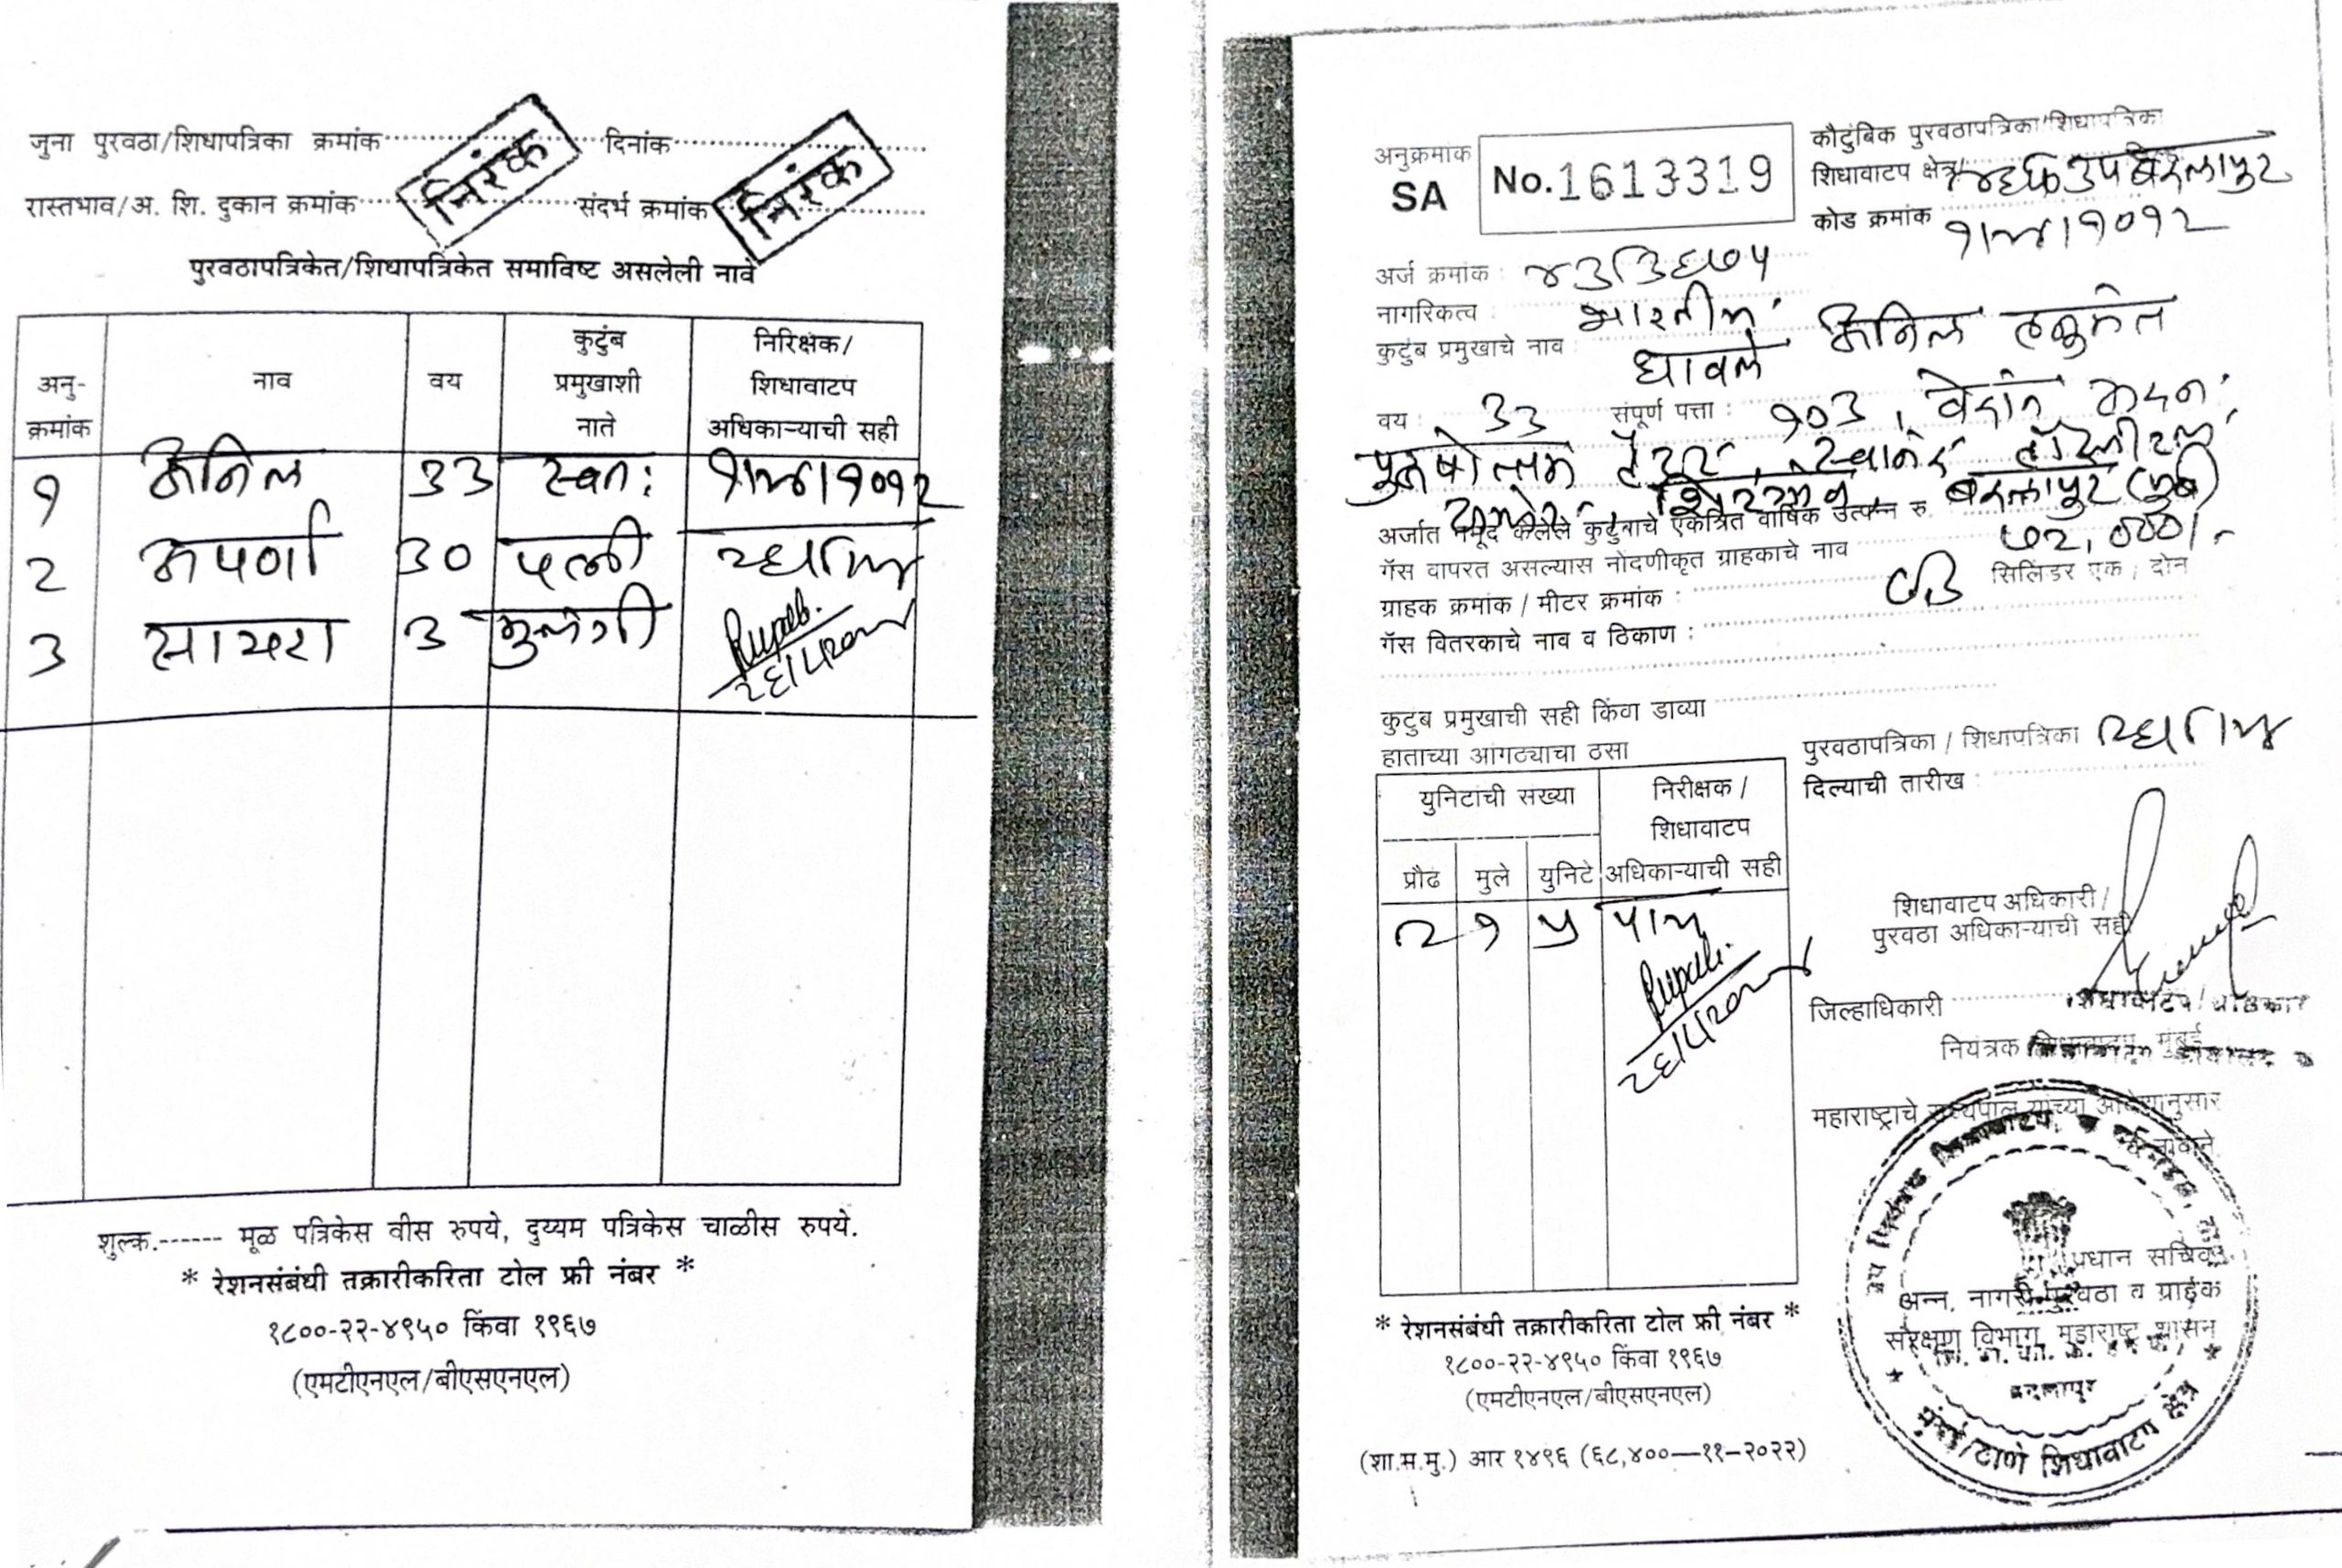 जुना पुरवठा/शिधापत्रिका क्रमांक निरंक दिनांक
रास्तभाव/अ. शि. दुकान क्रमांक संदर्भ क्रमांक निरंक
पुरवठापत्रिकेत/शिधापत्रिकेत समाविष्ट असलेली नावे
अनु-क्रमांक नाव वय कुटुंब प्रमुखाशी नाते निरिक्षक/शिधावाटप अधिकाऱ्याची सही
१ अनिल 33 स्वतः
२ अपर्णा 30 पत्नी
3 सायरा 3 मुलगी
Rupali
शुल्क.------ मूळ पत्रिकेस वीस रुपये, दुय्यम पत्रिकेस चाळीस रुपये.
* रेशनसंबंधी तक्रारीकरिता टोल फ्री नंबर *
१८००-२२-४९५० किंवा १९६७
(एमटीएनएल/बीएसएनएल)
अनुक्रमांक
SA
No.1613319
कौटुंबिक पुरवठापत्रिका/शिधापत्रिका
शिधावाटप क्षेत्र बदलापूर
कोड क्रमांक
अर्ज क्रमांक :
नागरिकत्व : भारतीय
कुटुंब प्रमुखाचे नाव : धावले अनिल
वय : 33 संपूर्ण पत्ता : १०3,
पुरुषोत्तम टॉवर,
बदलापूर (पूर्व)
अर्जात नमूद केलेले कुटुंबाचे एकत्रित वार्षिक उत्पन्न रु.
गॅस वापरत असल्यास नोंदणीकृत ग्राहकाचे नाव
ग्राहक क्रमांक / मीटर क्रमांक : सिलिंडर एक / दोन
गॅस वितरकाचे नाव व ठिकाण :
कुटुंब प्रमुखाची सही किंवा डाव्या
हाताच्या आंगठ्याचा ठसा
पुरवठापत्रिका / शिधापत्रिका
दिल्याची तारीख :
युनिटांची संख्या निरीक्षक / शिधावाटप अधिकाऱ्याची सही
प्रौढ मुले युनिटे
२ १ ५ पाच
Rupali
शिधावाटप अधिकारी/
पुरवठा अधिकाऱ्याची सही
जिल्हाधिकारी
नियंत्रक शिधावाटप, मुंबई
महाराष्ट्राचे राज्यपाल यांच्या आदेशानुसार
व नावाने,
प्रधान सचिव,
अन्न, नागरी पुरवठा व ग्राहक
संरक्षण विभाग, महाराष्ट्र शासन
बदलापूर
मुंबई/ठाणे शिधावाटप क्षेत्र
* रेशनसंबंधी तक्रारीकरिता टोल फ्री नंबर *
१८००-२२-४९५० किंवा १९६७
(एमटीएनएल/बीएसएनएल)
(शा.म.मु.) आर १४९६ (६८,४००—११—२०२२)